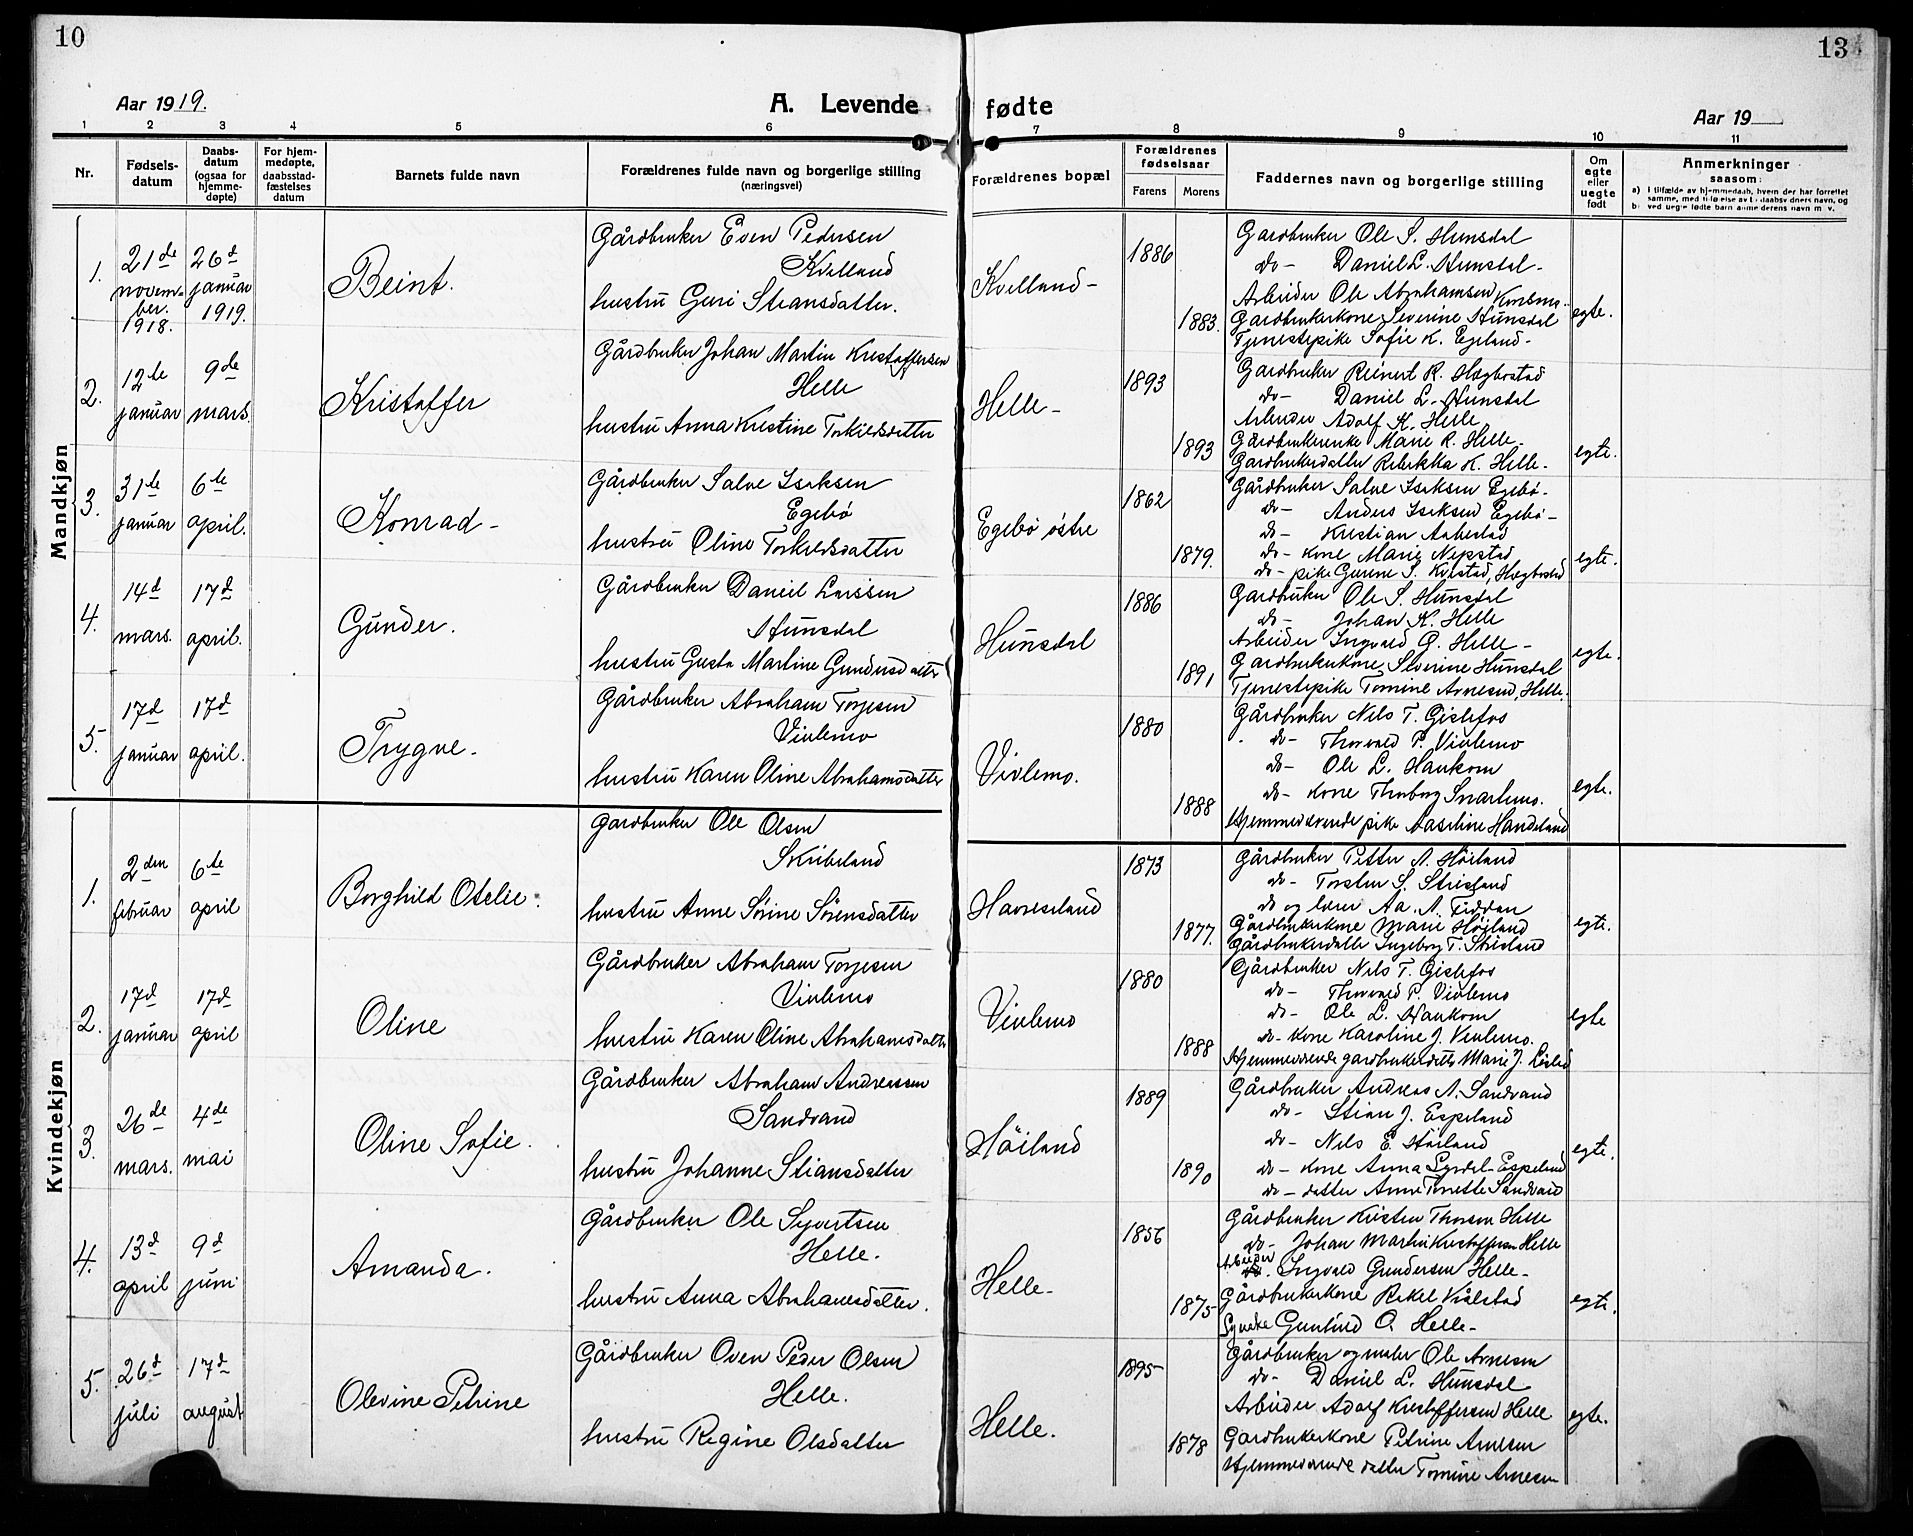 10
13
Aar 1919.
A. Levende fødte
Aar 19
1 2 3 4 5 6 7 8 9 10 11
Nr.
Fødsels-
datum
Daabs-
datum
(ogsaa for
hjemme-
døpte)
For hjem-
medøpte,
daabsstad-
fæstelses
datum
Barnets fulde navn
Forældrenes fulde navn og borgerlige stilling
(næringsvei)
Forældrenes bopæl
Forældrenes
fødselsaar
Farens
Morens
Faddernes navn og borgerlige stilling
Om
egte
eller
uegte
født
Anmerkninger
saasom:
a) i tilfælde av hjemmedaab, hvem der har forrettet
samme, med tilføielse av daabsvidners navn, og
b) ved uegte fødte barn anmelderens navn m. v.
Mandkjøn
1.
21de
novem-
ber.
1918.
26d
januar
1919.
Beint.
Gårdbruker Even Pedersen
Kvelland
hustru Guri Stiansdatter.
Kvelland-
1886
1883.
Gardbruker Ole S. Hunsdal
do- Daniel L. Hunsdal-
Arbeider Ole Abrahamsen
Gardbrukerkone Severine Hunsdal
Tjenestepike Sofie K. Egeland-
egte.
2.
12te
januar
9de
mars.
Kristoffer
Gårdbruker Johan Martin Kristoffersen
Helle
hustru Anna Kristine Torkildsdatter
Helle-
1893
1893
Gardbruker Reinert R. Hægbostad
do- Daniel L. Hunsdal
Arbeider Adolf K. Helle
Gårdbrukerenke Marie R. Helle-
Gardbrukerdatter Rebekka K. Helle-
egte.
3.
31te
januar
6te
april.
Konrad-
Gårdbruker Salve Isaksen
Egebø
hustru Oline Torkildsdatter
Egebø østre
1862
1879.
Gårdbruker Salve Isaksen Egebø-
do- Anders Isaksen Egebø-
do- Kristian
do- kone Marie Nepstad
do- pike Gunne S. Hægbostad
egte.
4.
14d
mars.
17d
april.
Gunder.
Gårdbruker Daniel Larssen
Hunsdal
hustru Gusta Martine Gundersdatter
Hunsdal
1886
1891
Gardbruker Ole S. Hunsdal
do- Johan K. Helle
Arbeider Ingvald G. Helle-
Gardbrukerkone Severine Hunsdal
Tjenestepike Tomine Arnesen, Helle.
egte.
5.
17d
januar
17d
april.
Trygve.
Gårdbruker Abraham Torjesen
Vivlemo
hustru Karen Oline Abrahamsdatter
Vivlemo.
1880
1888
Gårdbruker Nils T. Gislefos
do- Thorvald P. Vivlemo
do- Ole L. Haukom
do- kone Thorborg Snartemo.
Hjemmeværende pike Aaseline Handeland
egte.
Kvindekjøn
1.
2den
februar
6te
april
Borghild Otelie.
Gardbruker Ole Olsen
Skeibeland
hustru Anne Sørine Sørensdatter
Havreseland
1873
1877.
Gårdbruker Petter N. Höiland
do- Torsten S. Strisland
do og lærer Aa. N. Fiddan
Gårdbrukerkone Marie Höiland
Gårdbrukerdatter Ingeborg T. Strisland
egte.
2.
17d
januar
17d
april
Oline
Gårdbruker Abraham Torjesen
Vivlemo
hustru Karen Oline Abrahamsdatter
Vivlemo
1880
1888
Gårdbruker Nils T. Gislefos
do- Thorvald P. Vivlemo
do- Ole L. Haukom
do- kone Karoline J. Vivlemo.
Hjemmeværende gardbrukerdatter Marie J.
egte
3.
26de
mars.
4de
mai
Oline Sofie.
Gårdbruker Abraham Andreassen
Sandvand
hustru Johanne Stiansdatter
Höiland
1889
1890
Gårdbruker Andreas A. Sandvand
do- Stian J. Espeland
do- Nils E. Höiland
do- kone Anna Lyrdal-Espeland
do- datter Anne Tonette Sandvand
egte.
4.
13d
april
9d
juni
Amanda.
Gårdbruker Ole Syvertsen
Helle.
hustru Anna Abrahamsdatter.
Helle-
1856
1875-
Gårdbruker Kristen Thorsen Helle
do- Johan Martin Kristoffersen Helle
Arbeider Ingvald Gundersen Helle-
Gårdbrukerkone Rakel Kvålstad
Gunhild O. Helle-
egte.
5.
26d
juli
17d
august
Olevine Petrine
Gårdbruker Oven Peder Olsen
Helle.
hustru Regine Olsdatter
Helle.
1895-
1878
Gårdbruker og maler Ole Arnesen
do- Daniel L. Hunsdal
Arbeider Adolf Kristoffersen Helle
Gardbrukerkone Petrine Arnesen
Hjemmeværende datter Tomine Arnesen
egte.